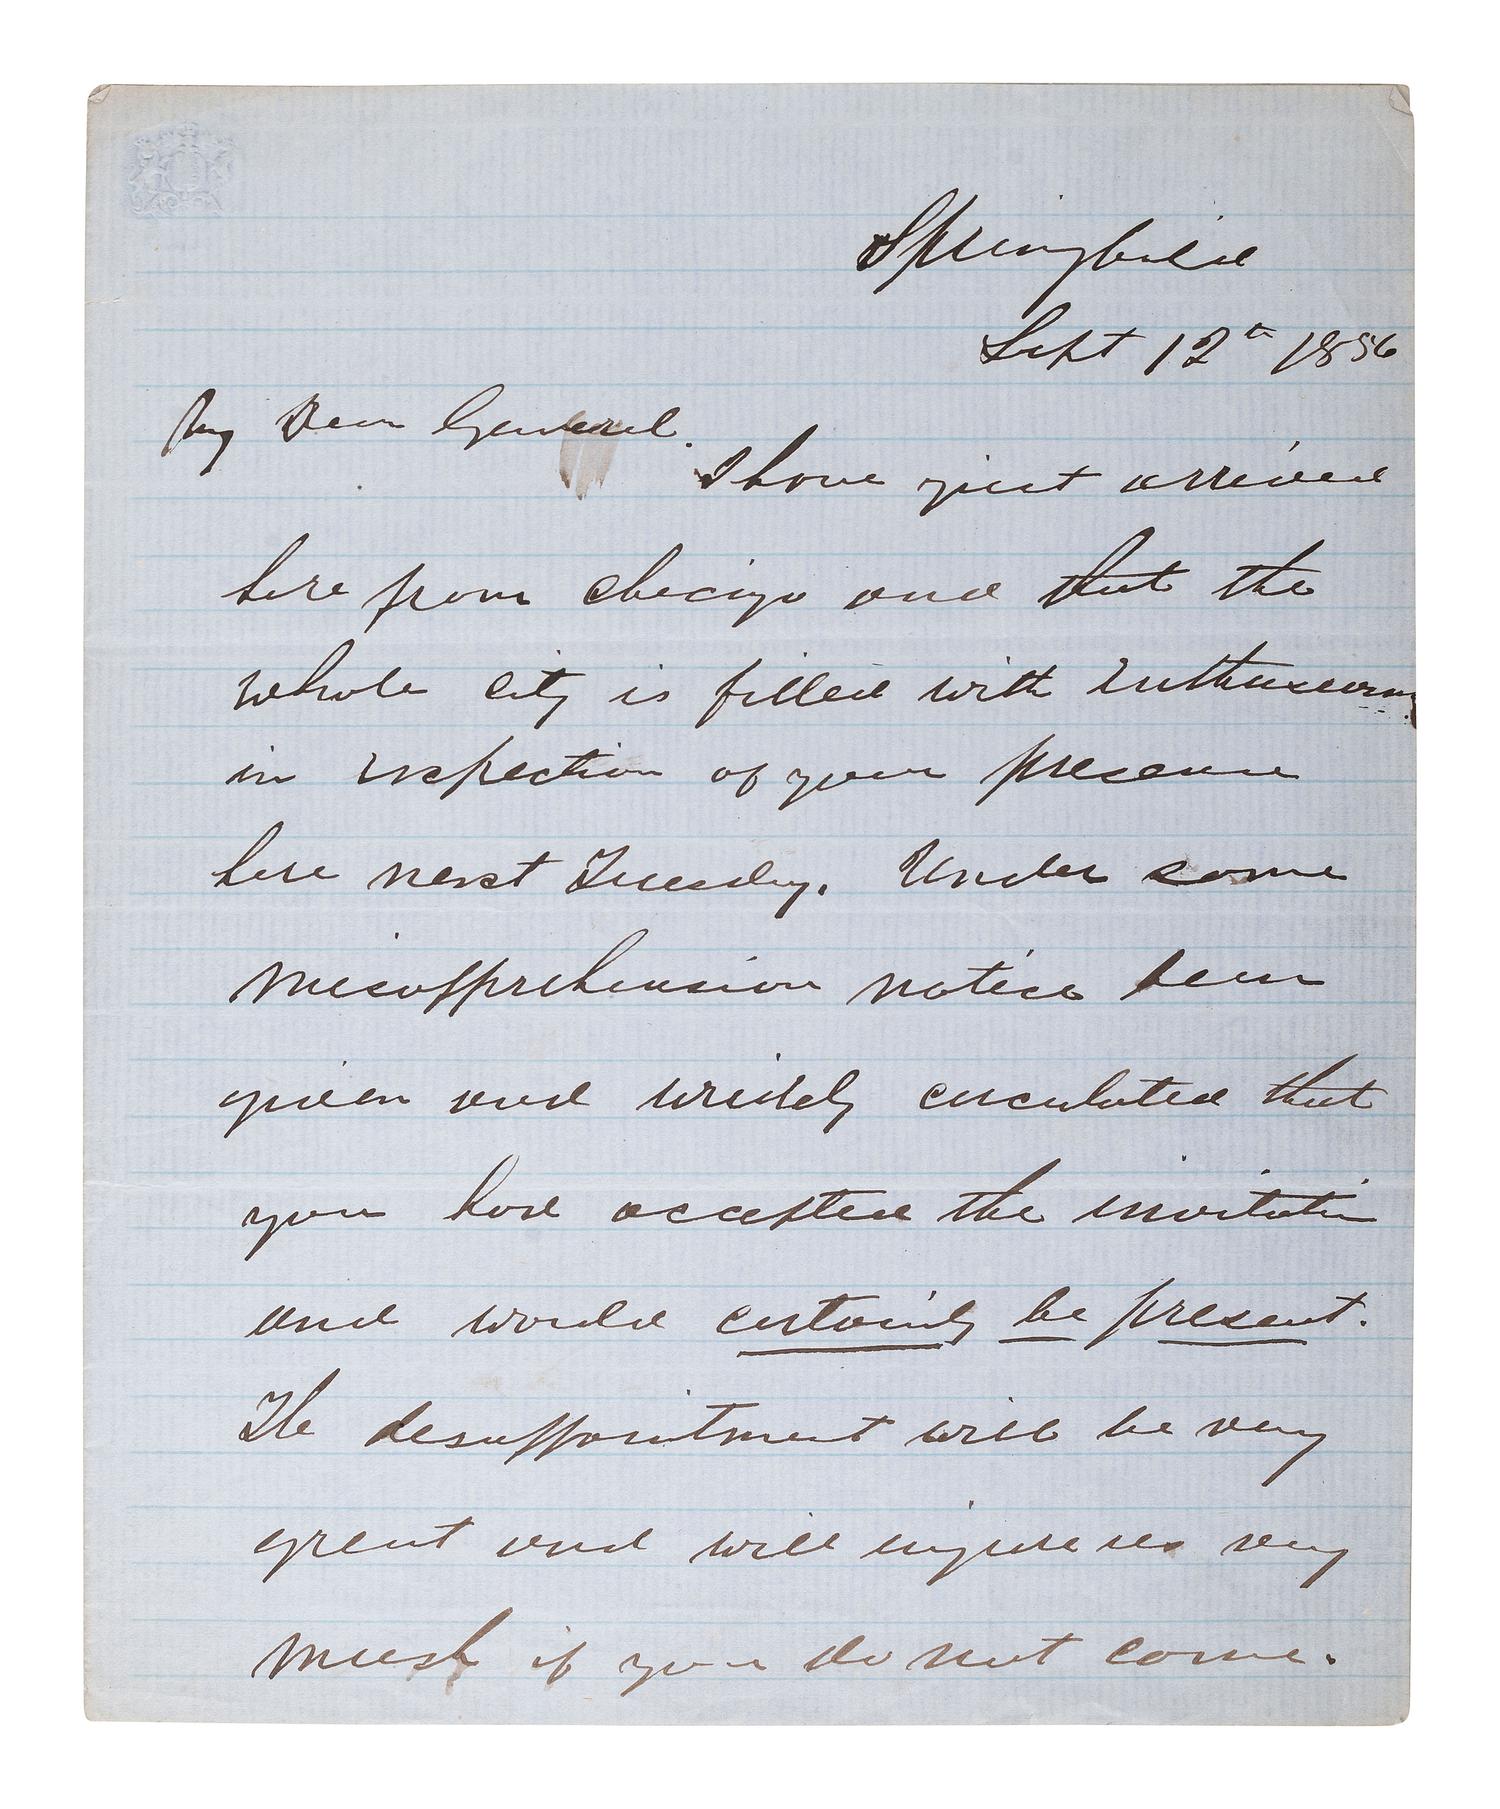 Springfield
Sept 12th 1856
My Dear General.
I have just arrived
here from Chicago and that the
whole city is filled with enthusiasm
in expection of your presence
here next Tuesday. Under some
misapprehension notice been
given and widely circulated that
you had accepted the invitation
and would certainly be present.
The disappointment will be very
great and will injure us very
much if you do not come.